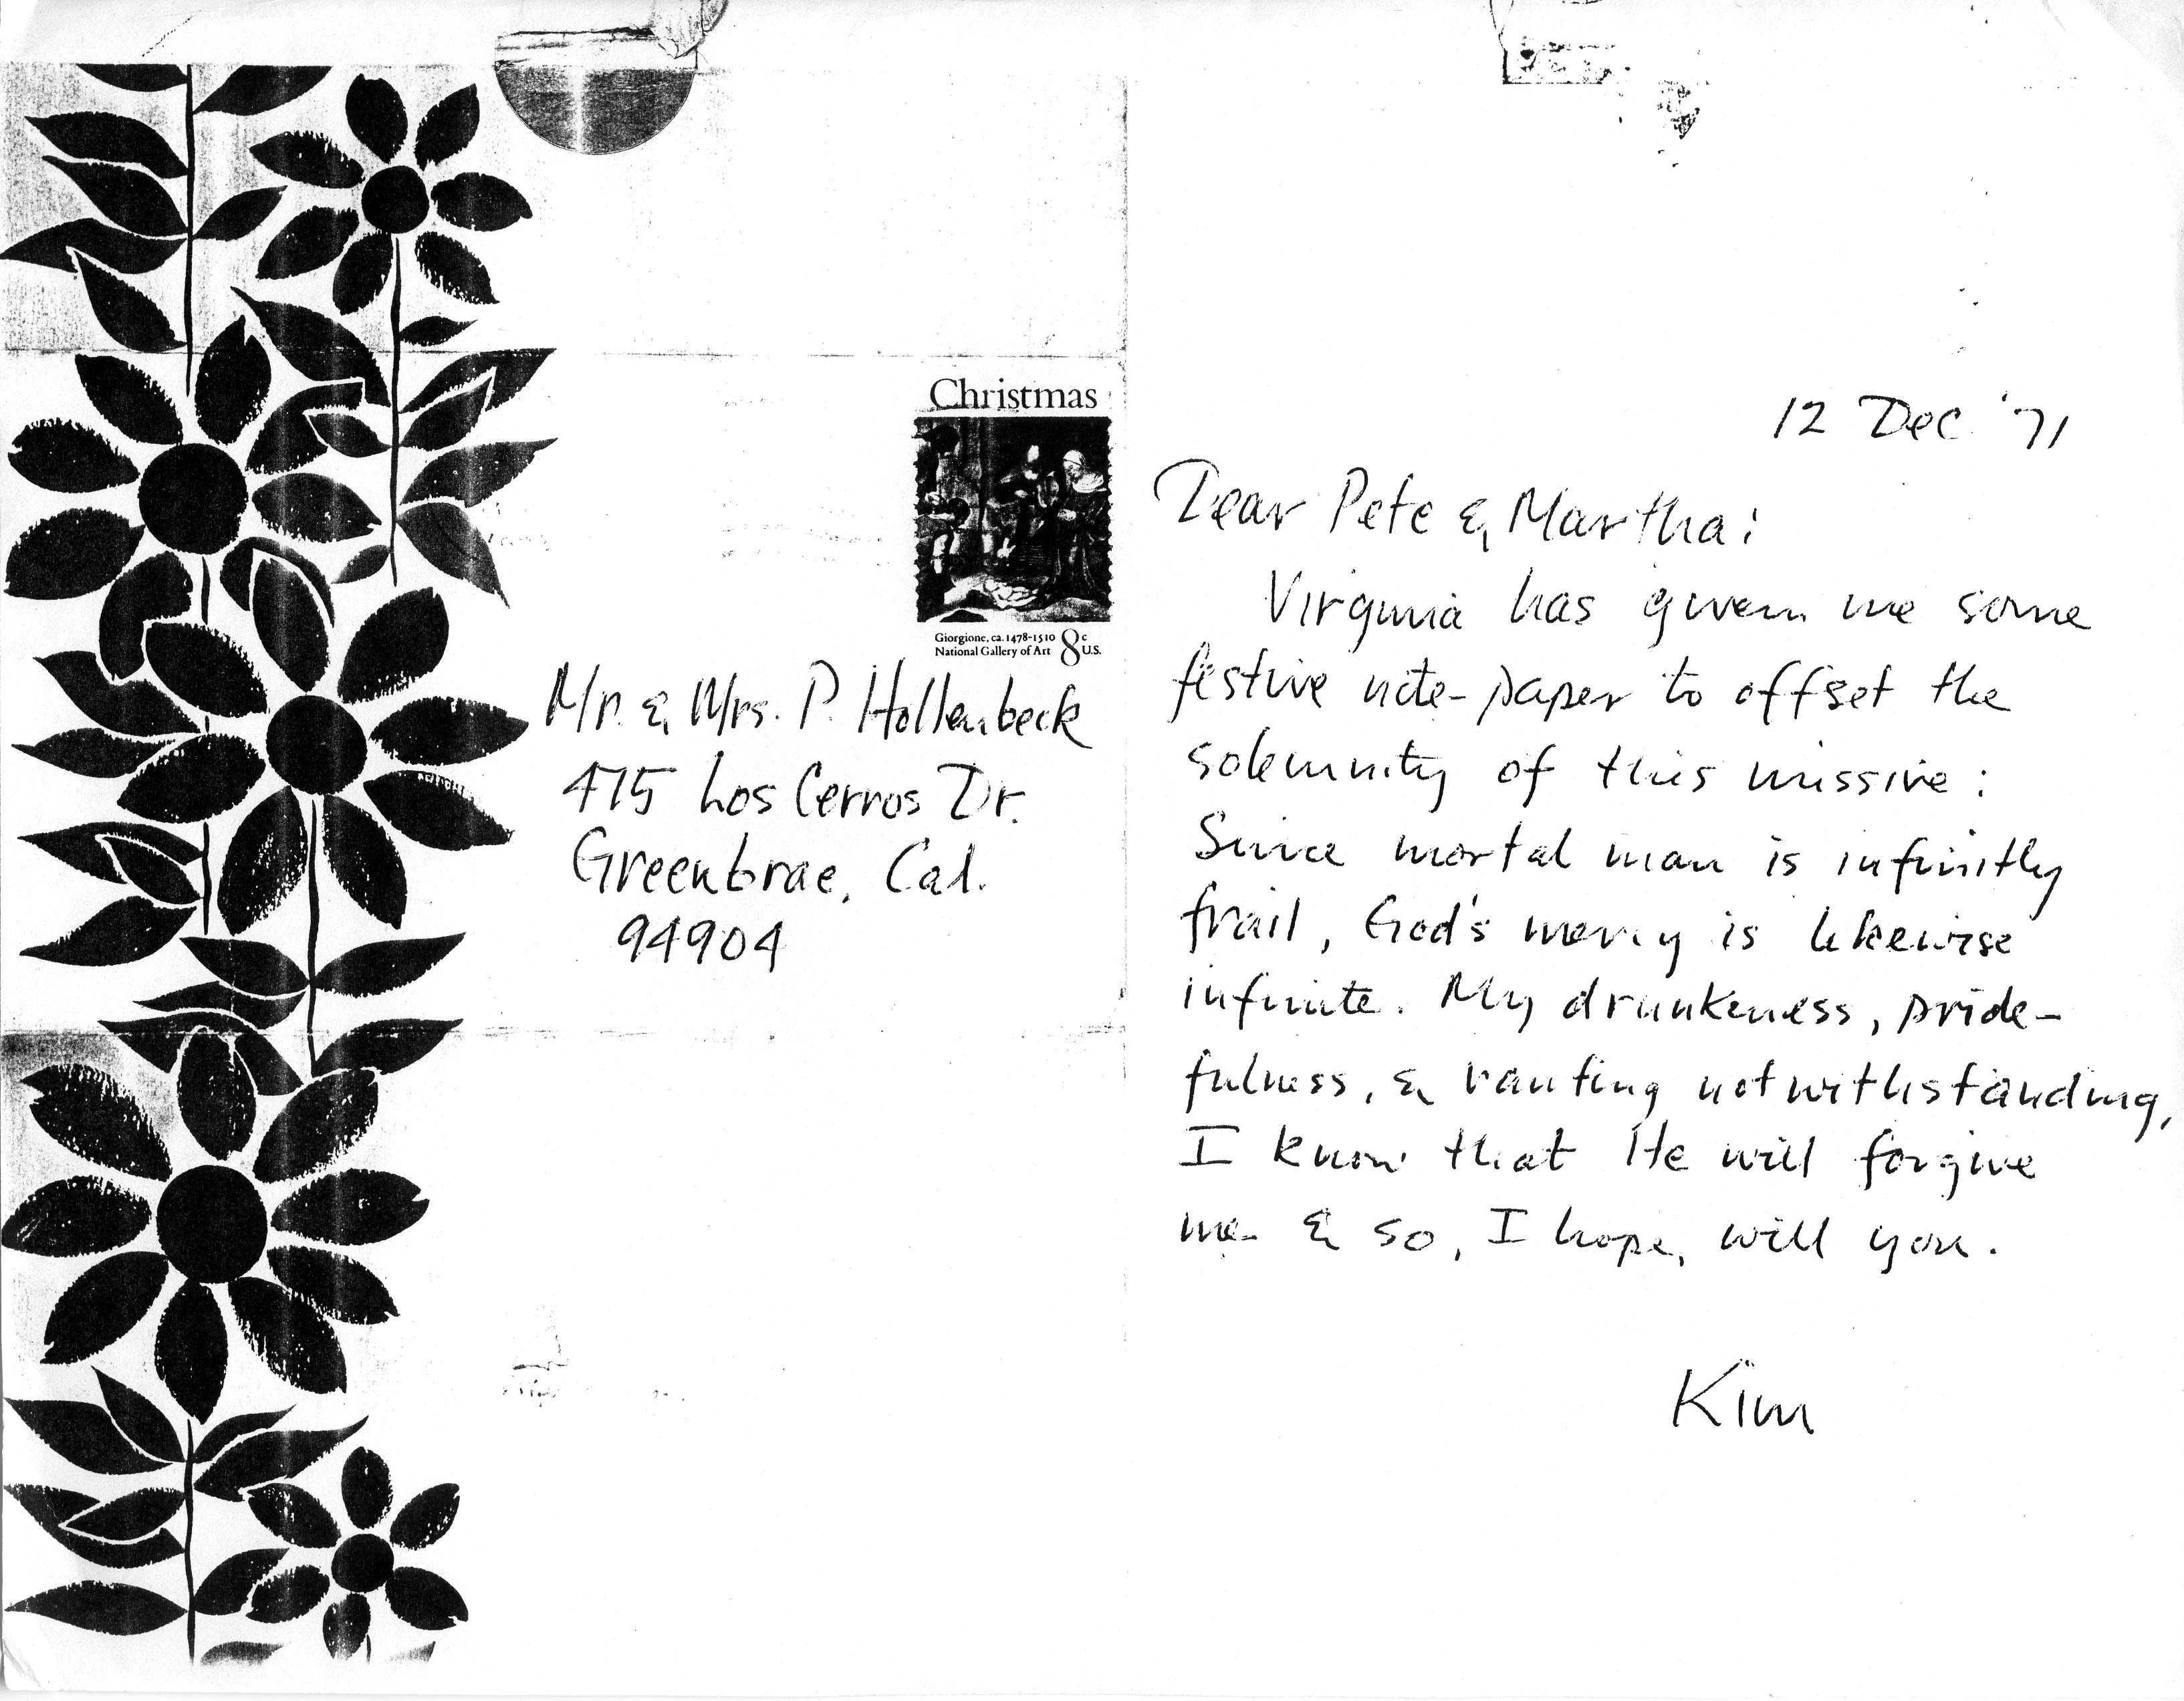 Christmas
Giorgione, ca. 1478-1510
National Gallery of Art
8c
U.S.
Mr. & Mrs. P. Hollenbeck
475 Los Cerros Dr.
Greenbrae, Cal.
94904
12 Dec '71
Dear Pete & Martha:
Virginia has given me some
festive note-paper to offset the
solemnity of this missive:
Since mortal man is infinitly
frail, God's mercy is likewise
infinite. My drunkeness, pride-
fulness, & ranting notwithstanding,
I know that He will forgive
me & so, I hope, will you.
Kim